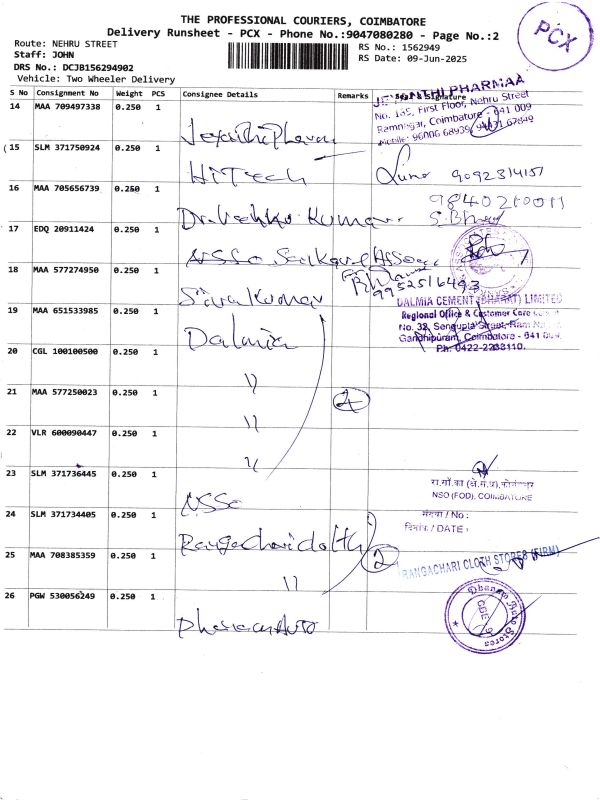 THE PROFESSIONAL COURIERS, COIMBATORE
Delivery Runsheet - PCX - Phone No.:9047080280 - Page No.:2
PCX
Route: NEHRU STREET
RS No.: 1562949
Staff: JOHN
RS Date: 09-Jun-2025
DRS No.: DCJB156294902
Vehicle: Two Wheeler Delivery
S No Consignment No Weight PCS Consignee Details Remarks Seal & Signature
JEYANTHI PHARMAA
No. 165, First Floor, Nehru Street
Ramnagar, Coimbatore - 641 009
Mobile: 96006 68939, 94871 67849
14 MAA 709497338 0.250 1
15 SLM 371750924 0.250 1 HiTech 9092314151
16 MAA 705656739 0.250 1 Dr. Kumar 9840210011
17 EDQ 20911424 0.250 1 NSSO
18 MAA 577274950 0.250 1 Sivakumar 9952516493
DALMIA CEMENT (BHARAT) LIMITED
Regional Office & Customer Care
No. 32, Sengupta Street, Ram
Gandhipuram, Coimbatore - 641
Ph: 0422-2233110.
19 MAA 651533985 0.250 1 Dalmia
20 CGL 100100500 0.250 1 "
21 MAA 577250023 0.250 1 " 4
22 VLR 600090447 0.250 1 "
23 SLM 371736445 0.250 1 NSSO
NSO (FOD), COIMBATORE
संख्या / No :
दिनांक / DATE :
24 SLM 371734405 0.250 1 Rangachari
25 MAA 708385359 0.250 1 " 2
RANGACHARI CLOTH STORES (FIRM)
26 PGW 530056249 0.250 1 Auto
Dhanam Auto Stores
CBE